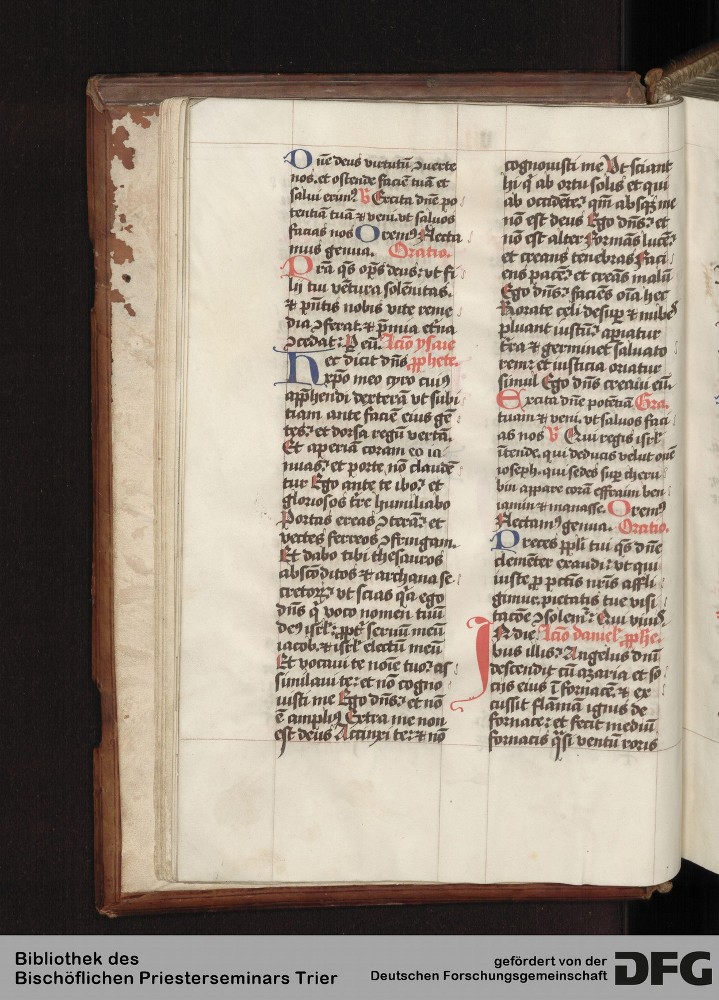 One deus virtutū ɔuerte
nos. et ostende faciē tuā et
salui erim⁹ V Excita dn̄e po
tentiā tuā & veni. vt saluos
facias nos Orem⁹ Flecta
mus genua. Oratio.
Pra qs̄ op̄s deus: vt fi
lij tui vētura solēnitas.
& p̄ntis nobis vite reme
dia ɔferat. & p̄mia et̄na
ɔcedat: P eū. Lc̄io ysaie
Hec dicit dn̄s ꝓphete.
xp̄o meo cyro cui⁹
app̄hendi dexterā vt subi
tiam ante faciē eius gē
tes: et dorsa regū vertā.
Et aperiā coram eo ia
nuas: et porte nō claudē
tur Ego ante te ibo: et
gloriosos t̄re humiliabo
Portas ereas ɔterā: et
vectes ferreos ɔfringam.
Et dabo tibi thesauros
abscōditos & archana se
cretoꝝ: vt scias q̄a ego
dn̄s q̄ voco nomen tuū
de⁹ isrl̄: ꝓpt̄ seruū meū
iacob. & isrl̄ electū meū
Et vocaui te noīe tuo: as
similaui te: et nō cogno
uisti me Ego dn̄s: et nō
ē ampli⁹ Extra me non
est deus Accinxi te: & nō
cognouisti me Vt sciant
hi q̄ ab ortu solis et qui
ab occidēte: qm̄ absqꝫ me
nō est deus Ego dn̄s: et
nō est alter Formās lucē:
et creans tenebras Faci
ens pacē: et creās malū
Ego dn̄s: faciēs oīa hec
Rorate celi desup̄ & nubes
pluant iustū: apiatur
t̄ra & germinet saluato
rem: et iusticia oriatur
simul Ego dn̄s creaui eū.
Excita dn̄e potētiā Gra.
tuam & veni. vt saluos faci
as nos V Qui regis isrl̄
ītende. qui deducis velut ouē
ioseph. qui sedes sup̄ cheru
bin appare corā effraim ben
iamin & manasse. Orem⁹
Flectam⁹ genua. Oratio.
Preces ppl̄i tui qs̄ dn̄e
clemēter exaudi: vt qui
iuste ꝓ pctīs nr̄is affli
gimur. pietatis tue visi
tacōe ɔsolem̄: Qui viuis
In die: Lc̄io daniel̄ ꝓphe.
bus illis: Angelus dn̄i
descendit cū azaria et so
cijs eius ī fornacē. & ex
cussit flāmām ignis de
fornace: et fecit mediū
fornacis q̄si ventū roris
Bibliothek des
Bischöflichen Priesterseminars Trier
gefördert von der
Deutschen Forschungsgemeinschaft
DFG